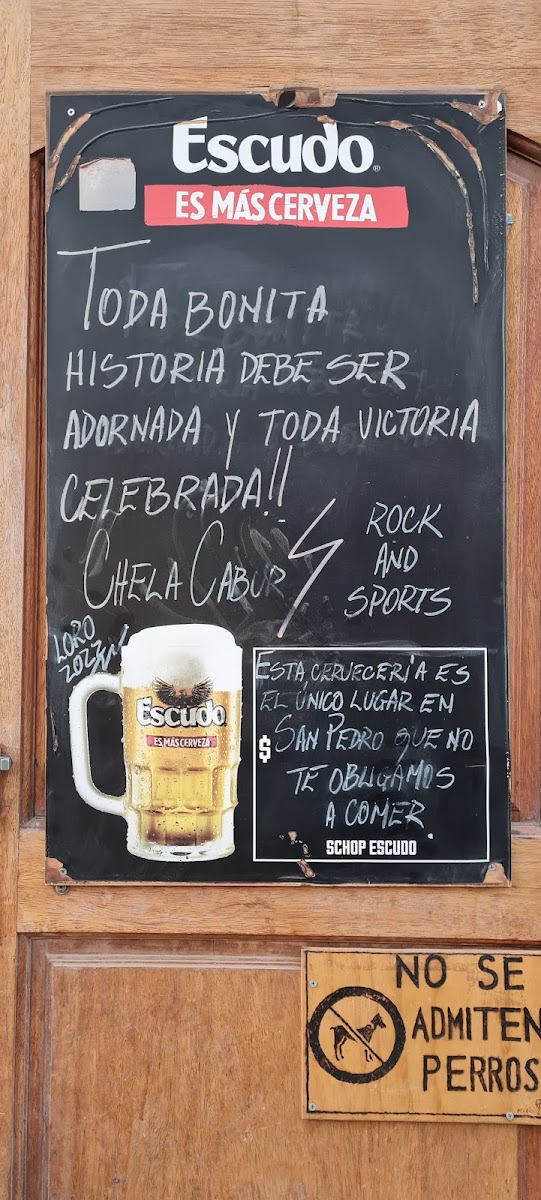 Escudo®
ES MÁS CERVEZA
TODA BONITA
HISTORIA DEBE SER
ADORNADA Y TODA VICTORIA
CELEBRADA!!
CHELA CABUR
ROCK
AND
SPORTS
LORO
2023
Escudo
ES MÁS CERVEZA
ESTA CERVECERÍA ES
EL ÚNICO LUGAR EN
$ SAN PEDRO QUE NO
TE OBLIGAMOS
A COMER.
SCHOP ESCUDO
NO SE
ADMITEN
PERROS